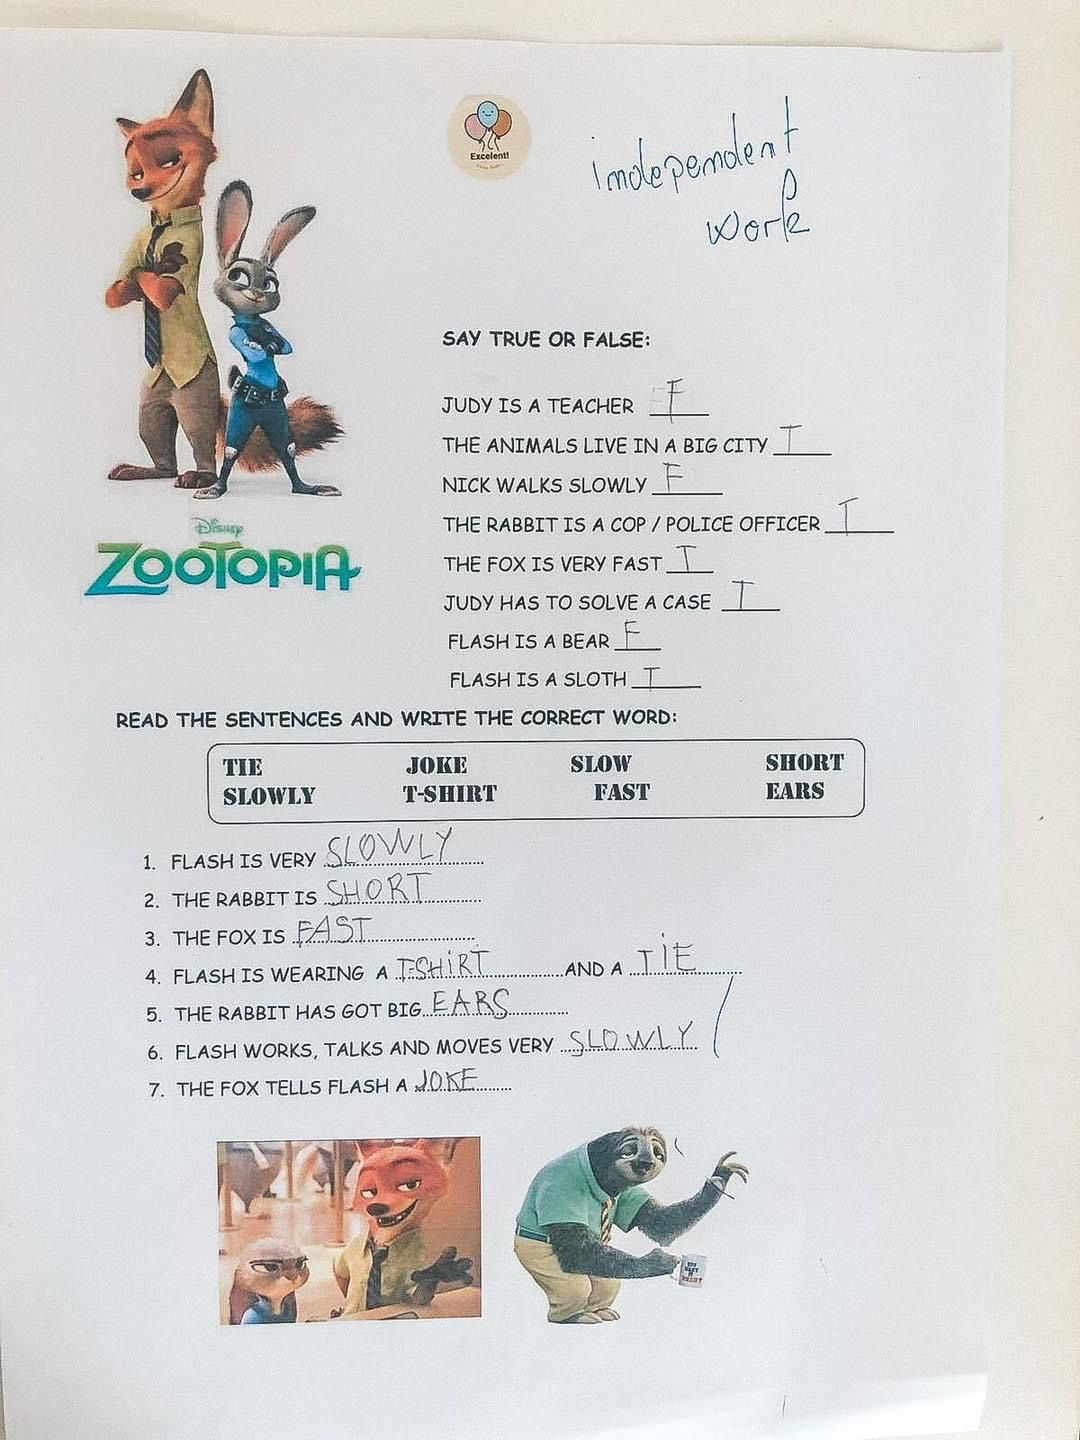 Excelent!
independent
work
SAY TRUE OR FALSE:
JUDY IS A TEACHER F
THE ANIMALS LIVE IN A BIG CITY T
NICK WALKS SLOWLY F
THE RABBIT IS A COP / POLICE OFFICER T
THE FOX IS VERY FAST T
JUDY HAS TO SOLVE A CASE T
FLASH IS A BEAR F
FLASH IS A SLOTH T
DISNEY
ZOOTOPIA
READ THE SENTENCES AND WRITE THE CORRECT WORD:
TIE JOKE SLOW SHORT
SLOWLY T-SHIRT FAST EARS
1. FLASH IS VERY SLOWLY
2. THE RABBIT IS SHORT
3. THE FOX IS FAST
4. FLASH IS WEARING A T-SHiRT AND A TiE
5. THE RABBIT HAS GOT BIG EARS
6. FLASH WORKS, TALKS AND MOVES VERY SLOWLY
7. THE FOX TELLS FLASH A JOKE
YOU
WANT
IT
WHEN?